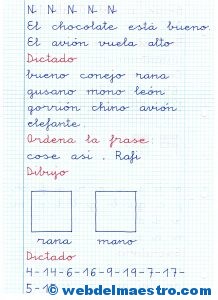 N N N N N
El chocolate está bueno.
El avión vuela alto
Dictado
bueno conejo rana
gusano mono león
gorrión chino avión
elefante.
Ordena la frase
cose así . Rafi
Dibujo
rana mano
Dictado
4-14-6-16-9-19-7-17-
5-15
© webdelmaestro.com